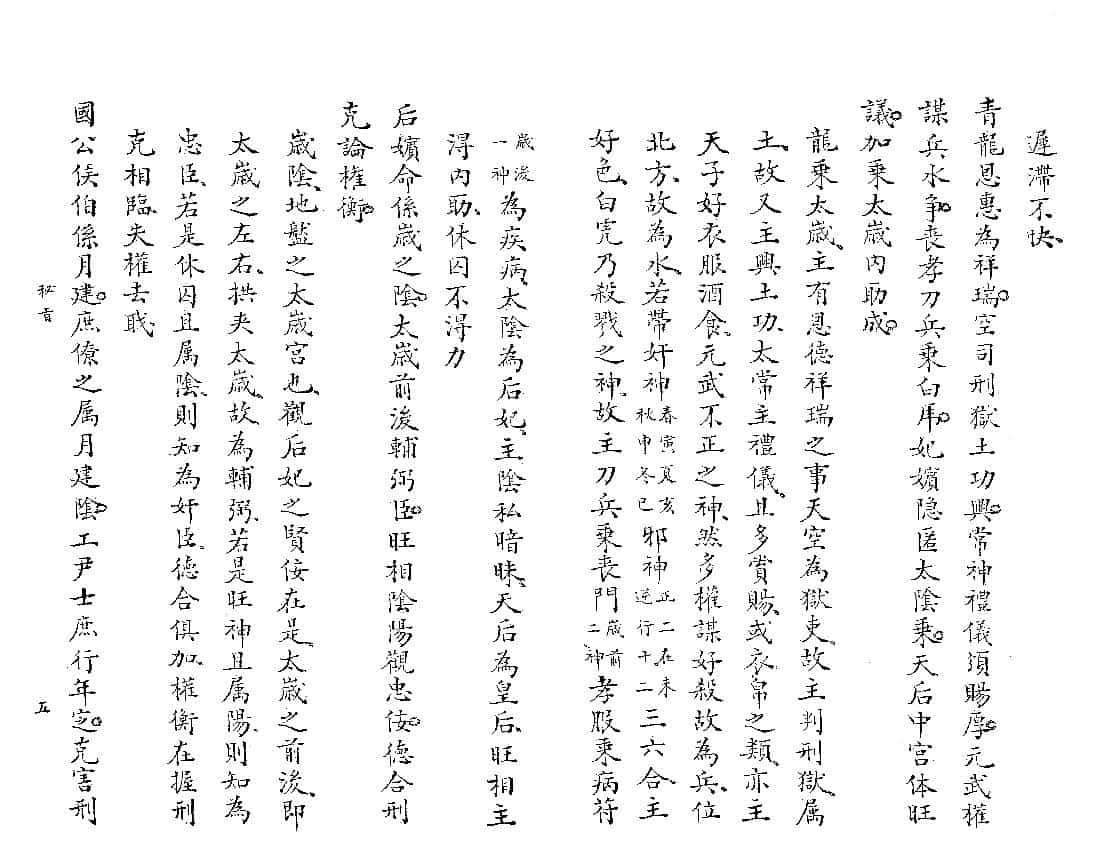 遲滯不快、
青龍恩惠為祥瑞。空司刑獄土功興。常神禮儀須賜厚。元武權
謀兵水争。丧孝刀兵乘白虎。妃嬪隐匿太陰乘。天后中宮体旺
議。加乘太歲内助成。
龍乘太歲、主有恩德祥瑞之事天空為獄吏、故主判刑獄、属
土、故又主興土功、太常主禮儀、且多賞賜、或衣帛之類、亦主
天子好衣服酒食、元武不正之神、然多權謀好殺故為兵、位
北方、故為水、若帶奸神春寅夏亥秋申冬巳邪神正二在未逆行十二三六合、主
好色、白虎乃殺戮之神、故主刀兵乘丧門歲前二神孝服乘病符
歲後一神為疾病、太陰為后妃、主陰私暗昧、天后為皇后、旺相主
得内助、休囚不得力
后嬪命係歲之陰。太歲前後輔弼臣。旺相陰陽觀忠佞。德合刑
克論權衡。
歲陰、地盤之太歲宮也、觀后妃之賢佞在是、太歲之前後、即
太歲之左右、拱夹太歲、故為輔弼、若是旺神且属陽、則知為
忠臣、若是休囚且属陰、則知為奸臣、德合俱加、權衡在握刑
克相臨、失權去職、
國公侯伯係月建。庶僚之属月建陰。工尹士庶行年定。克害刑
秘旨
五